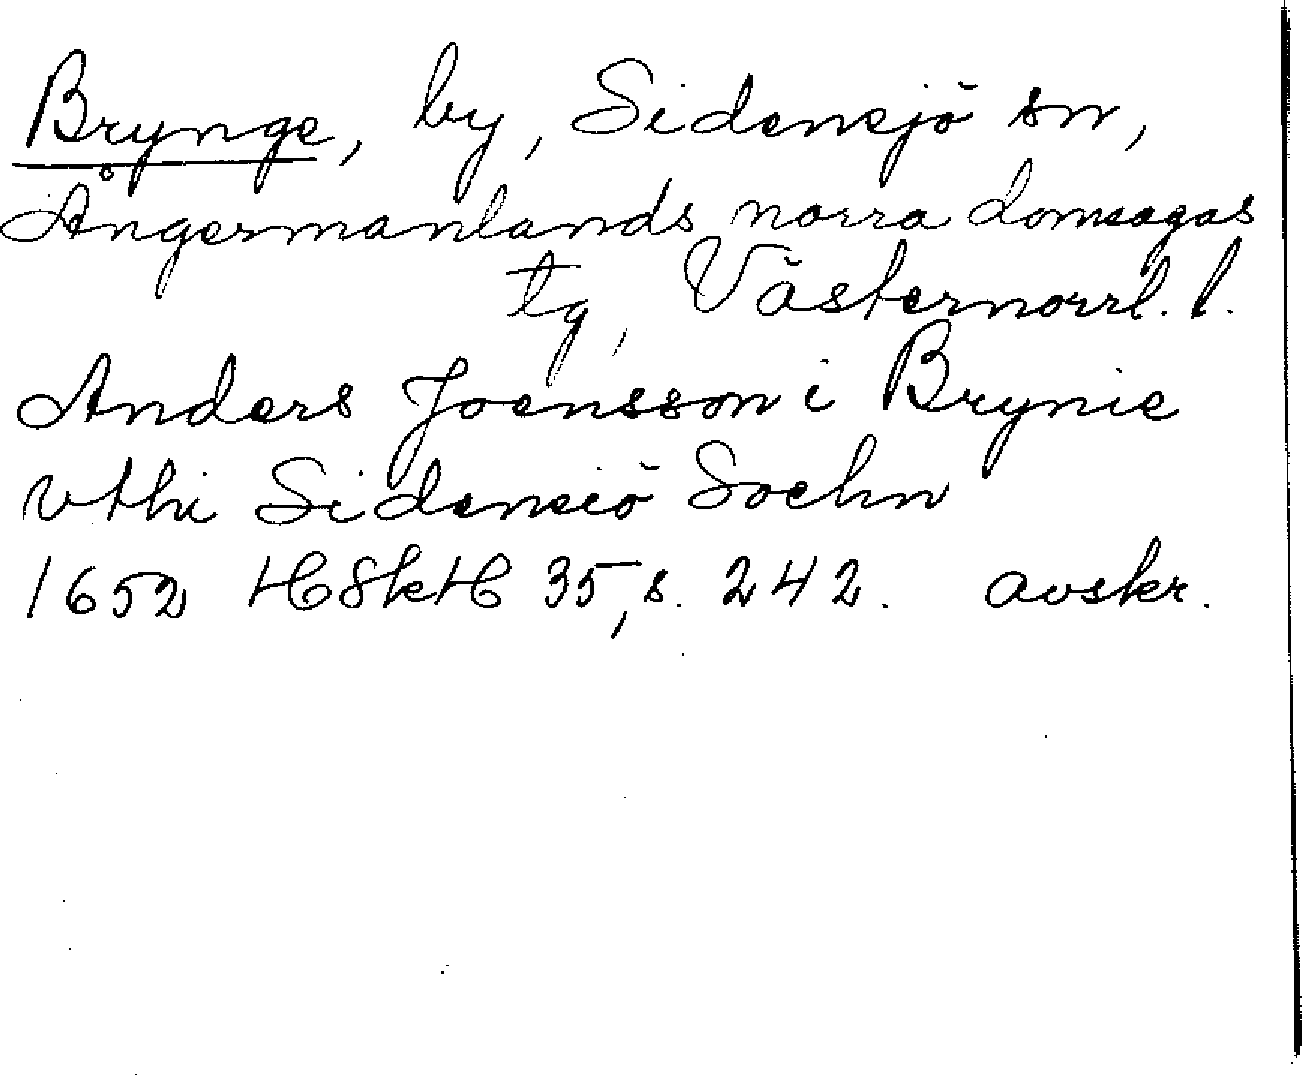 Brynge, by, Sidensjö sn,
Ångermanlands norra domsagas
tg, Västernorrl. l.
Anders Joensson i Brynie
vthi Sidensiö Sochn
1652 HSkH 35, s. 242. avskr.